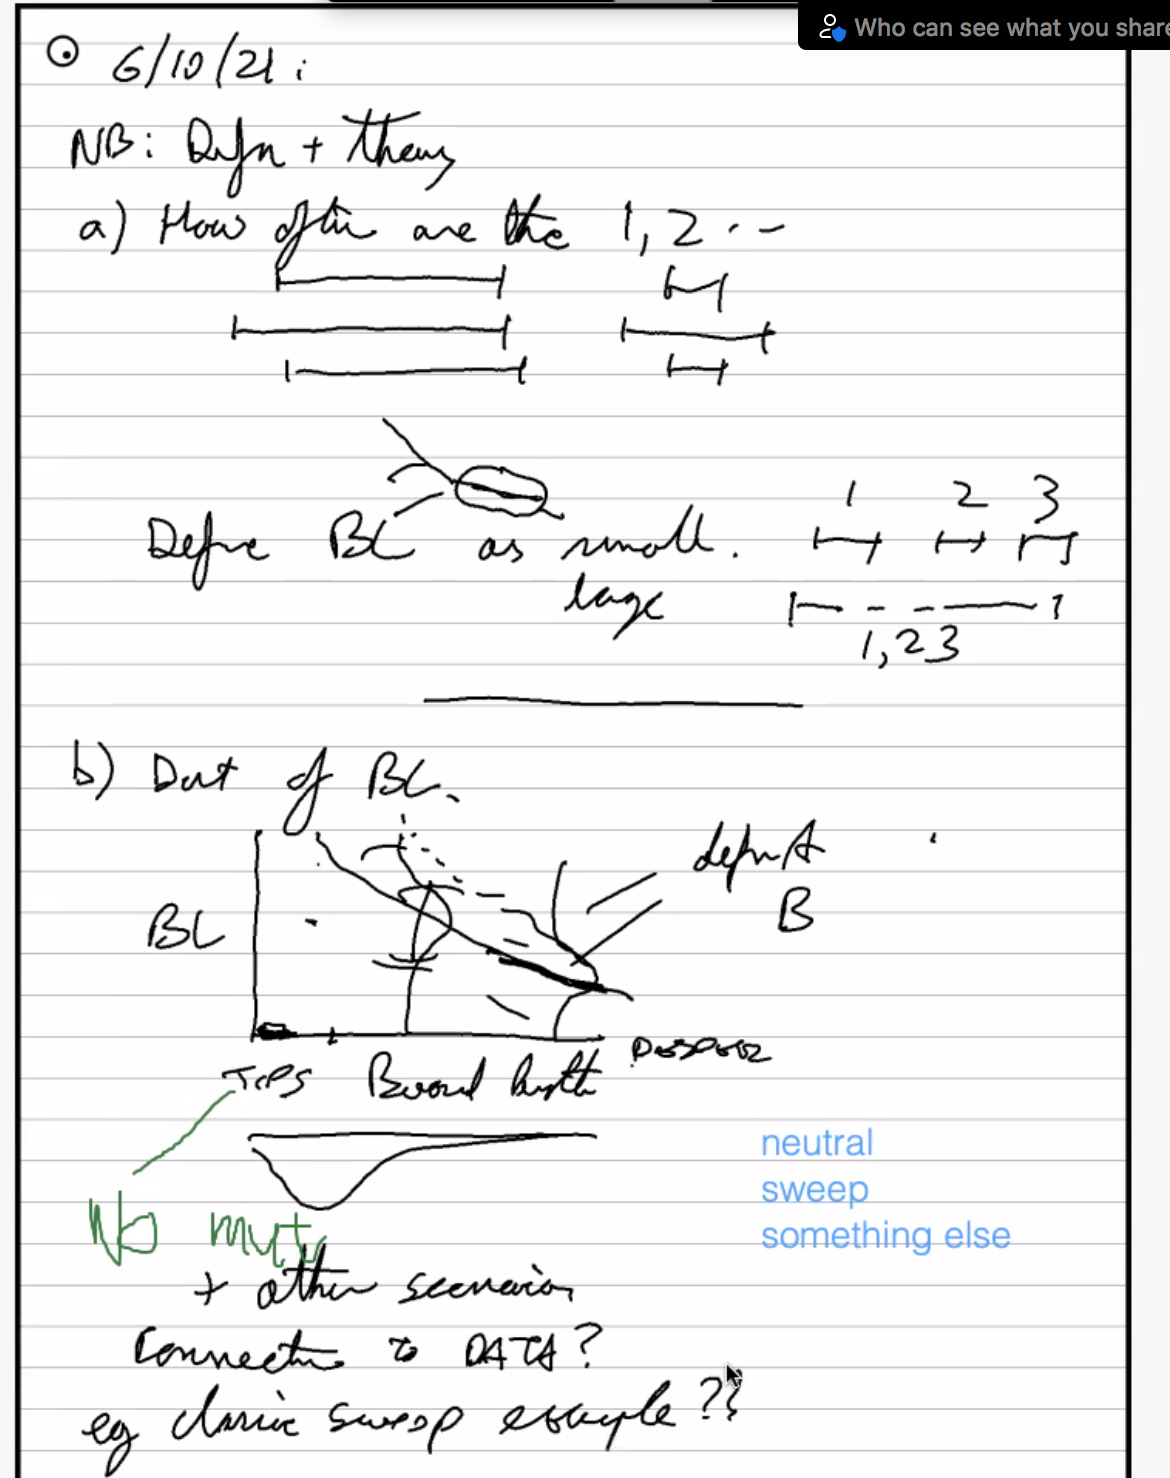 Who can see what you share
6/10/21:
NB: Defn + theory
a) How often are the 1, 2 . . -
1 2 3
Define BC as small.
large
1, 2 3
b) Dist of BL.
defn A
B
BL
DEEPER
TIPS Branch length
neutral
sweep
something else
No mut
+ other scenarios
Connection to DATA?
eg classic sweep example ??